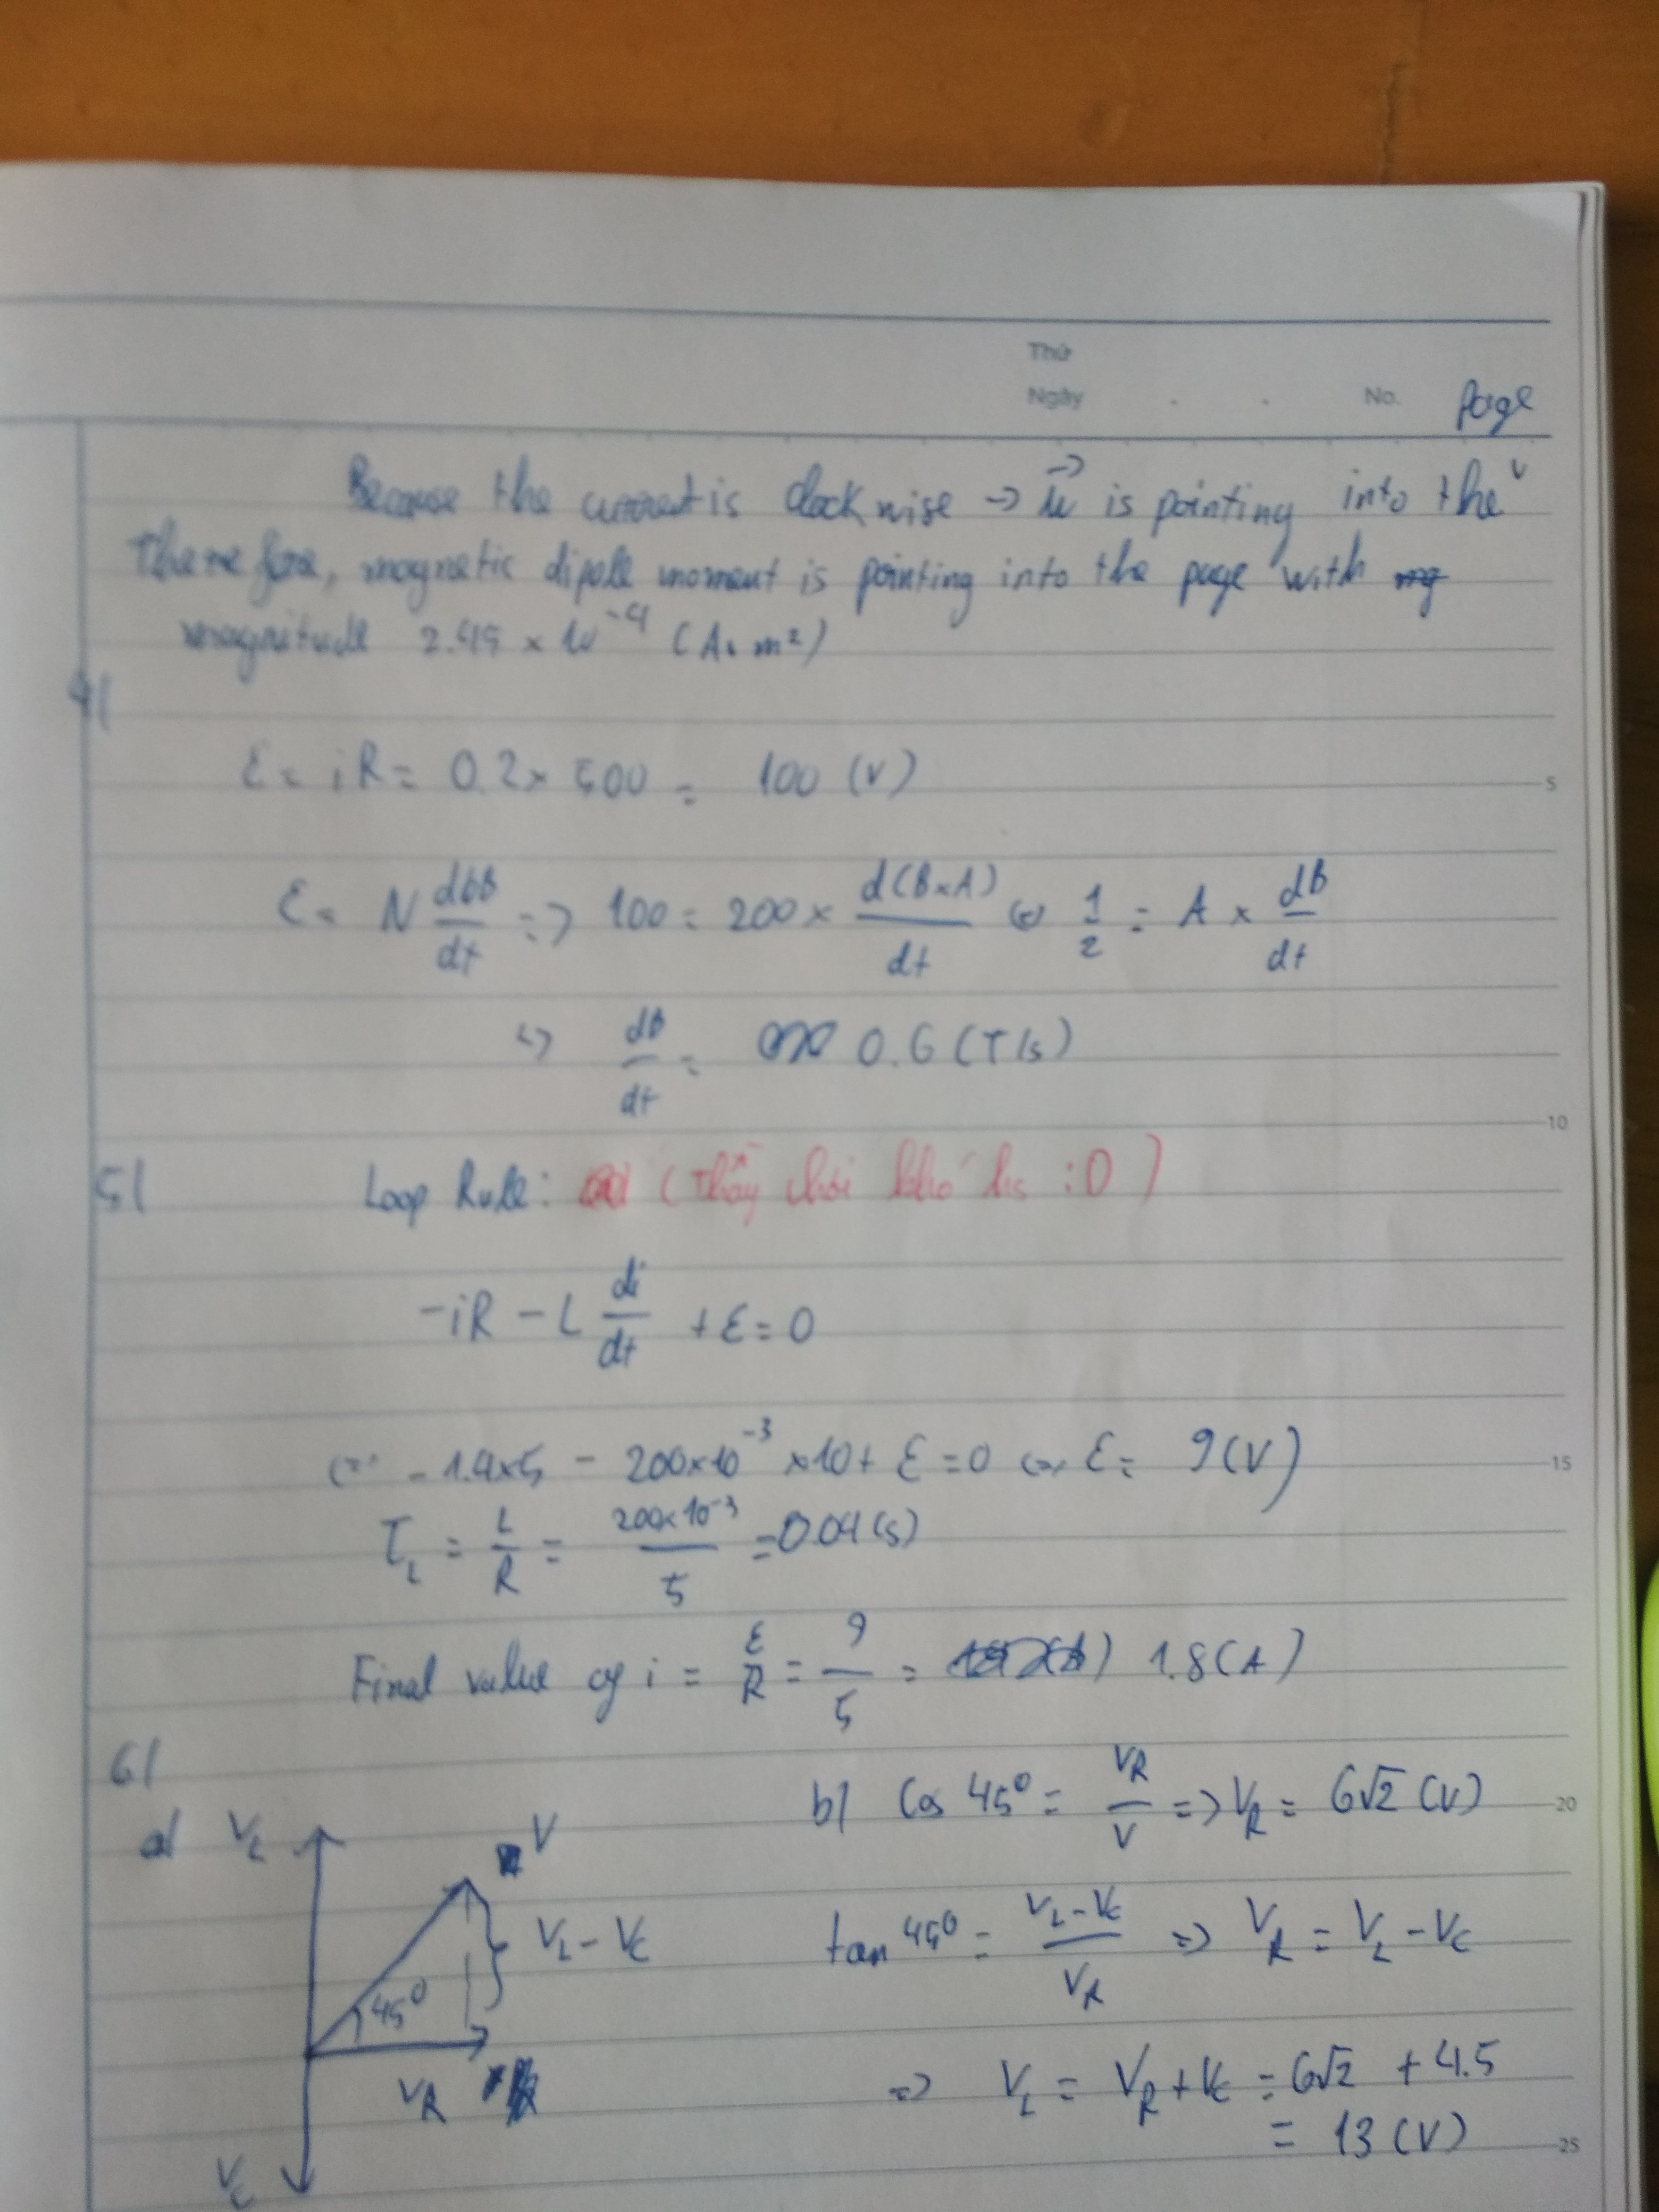 Thứ
Ngày . . No. Page
Because the current is clockwise → μ⃗ is pointing into the
Therefore, magnetic dipole moment is pointing into the page with
magnitude 2.45 × 10⁻⁴ (A.m²)
4/
ε = iR = 0.2 × 500 = 100 (V)
5
ε = N dΦB/dt => 100 = 200 × d(B×A)/dt ⇔ 1/2 = A × dB/dt
↔ dB/dt = 0.6 (T/s)
10
5/ Loop Rule: (Thầy chơi khó hs :0)
-iR - L di/dt + ε = 0
⇔ -1.4×5 - 200×10⁻³ ×10 + ε = 0 ⇔ ε = 9 (V)
15
τL = L/R = 200×10⁻³/5 = 0.04 (s)
Final value of i = ε/R = 9/5 = 1.8 (A)
6/
a) VL V VL - VC 45° VR VC
b) Cos 45° = VR/V => VR = 6√2 (V)
20
tan 45° = VL-VC/VR => VR = VL - VC
=> VL = VR + VC = 6√2 + 4.5
= 13 (V)
25